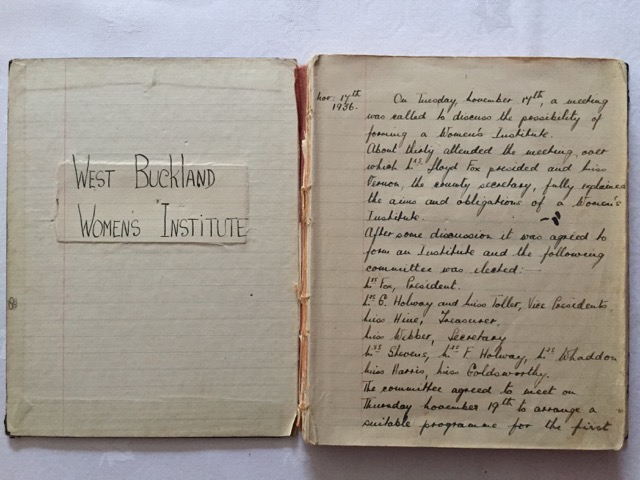 WEST BUCKLAND
WOMEN'S INSTITUTE
Nov: 17th
1936.
On Tuesday, November 17th, a meeting
was called to discuss the possibility of
forming a Women's Institute.
About thirty attended the meeting, over
which Mrs. Lloyd Fox presided and Miss
Vernon, the county secretary, fully explained
the aims and obligations of a Women's
Institute.
After some discussion it was agreed to
form an Institute and the following
committee was elected:
Mrs Fox, President.
Mrs E. Holway and Miss Toller, Vice Presidents.
Miss Hine, Treasurer.
Miss Webber, Secretary
Mrs Stevens, Mrs F. Holway, Mrs Whaddon
Miss Harris, Miss Goldsworthy.
The committee agreed to meet on
Thursday November 19th to arrange a
suitable programme for the first